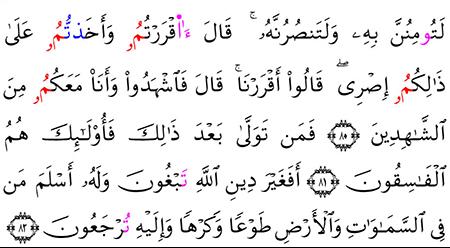 لَتُومِنُنَّ بِهِۦ وَلَتَنصُرُنَّهُۥۚ قَالَ ءَا۬قْرَرْتُمُۥ وَأَخَذتُّمُۥ عَلَىٰ
ذَٰلِكُمُۥٓ إِصْرِىۖ قَالُوٓا۟ أَقْرَرْنَاۚ قَالَ فَٱشْهَدُوا۟ وَأَنَا۠ مَعَكُمُۥ مِنَ
ٱلشَّٰهِدِينَ ٨٠ فَمَن تَوَلَّىٰ بَعْدَ ذَٰلِكَ فَأُو۟لَٰٓئِكَ هُمُ
ٱلْفَٰسِقُونَ ٨١ أَفَغَيْرَ دِينِ ٱللَّهِ تَبْغُونَ وَلَهُۥٓ أَسْلَمَ مَن
فِى ٱلسَّمَٰوَٰتِ وَٱلْأَرْضِ طَوْعًا وَكَرْهًا وَإِلَيْهِ تُرْجَعُونَ ٨٢